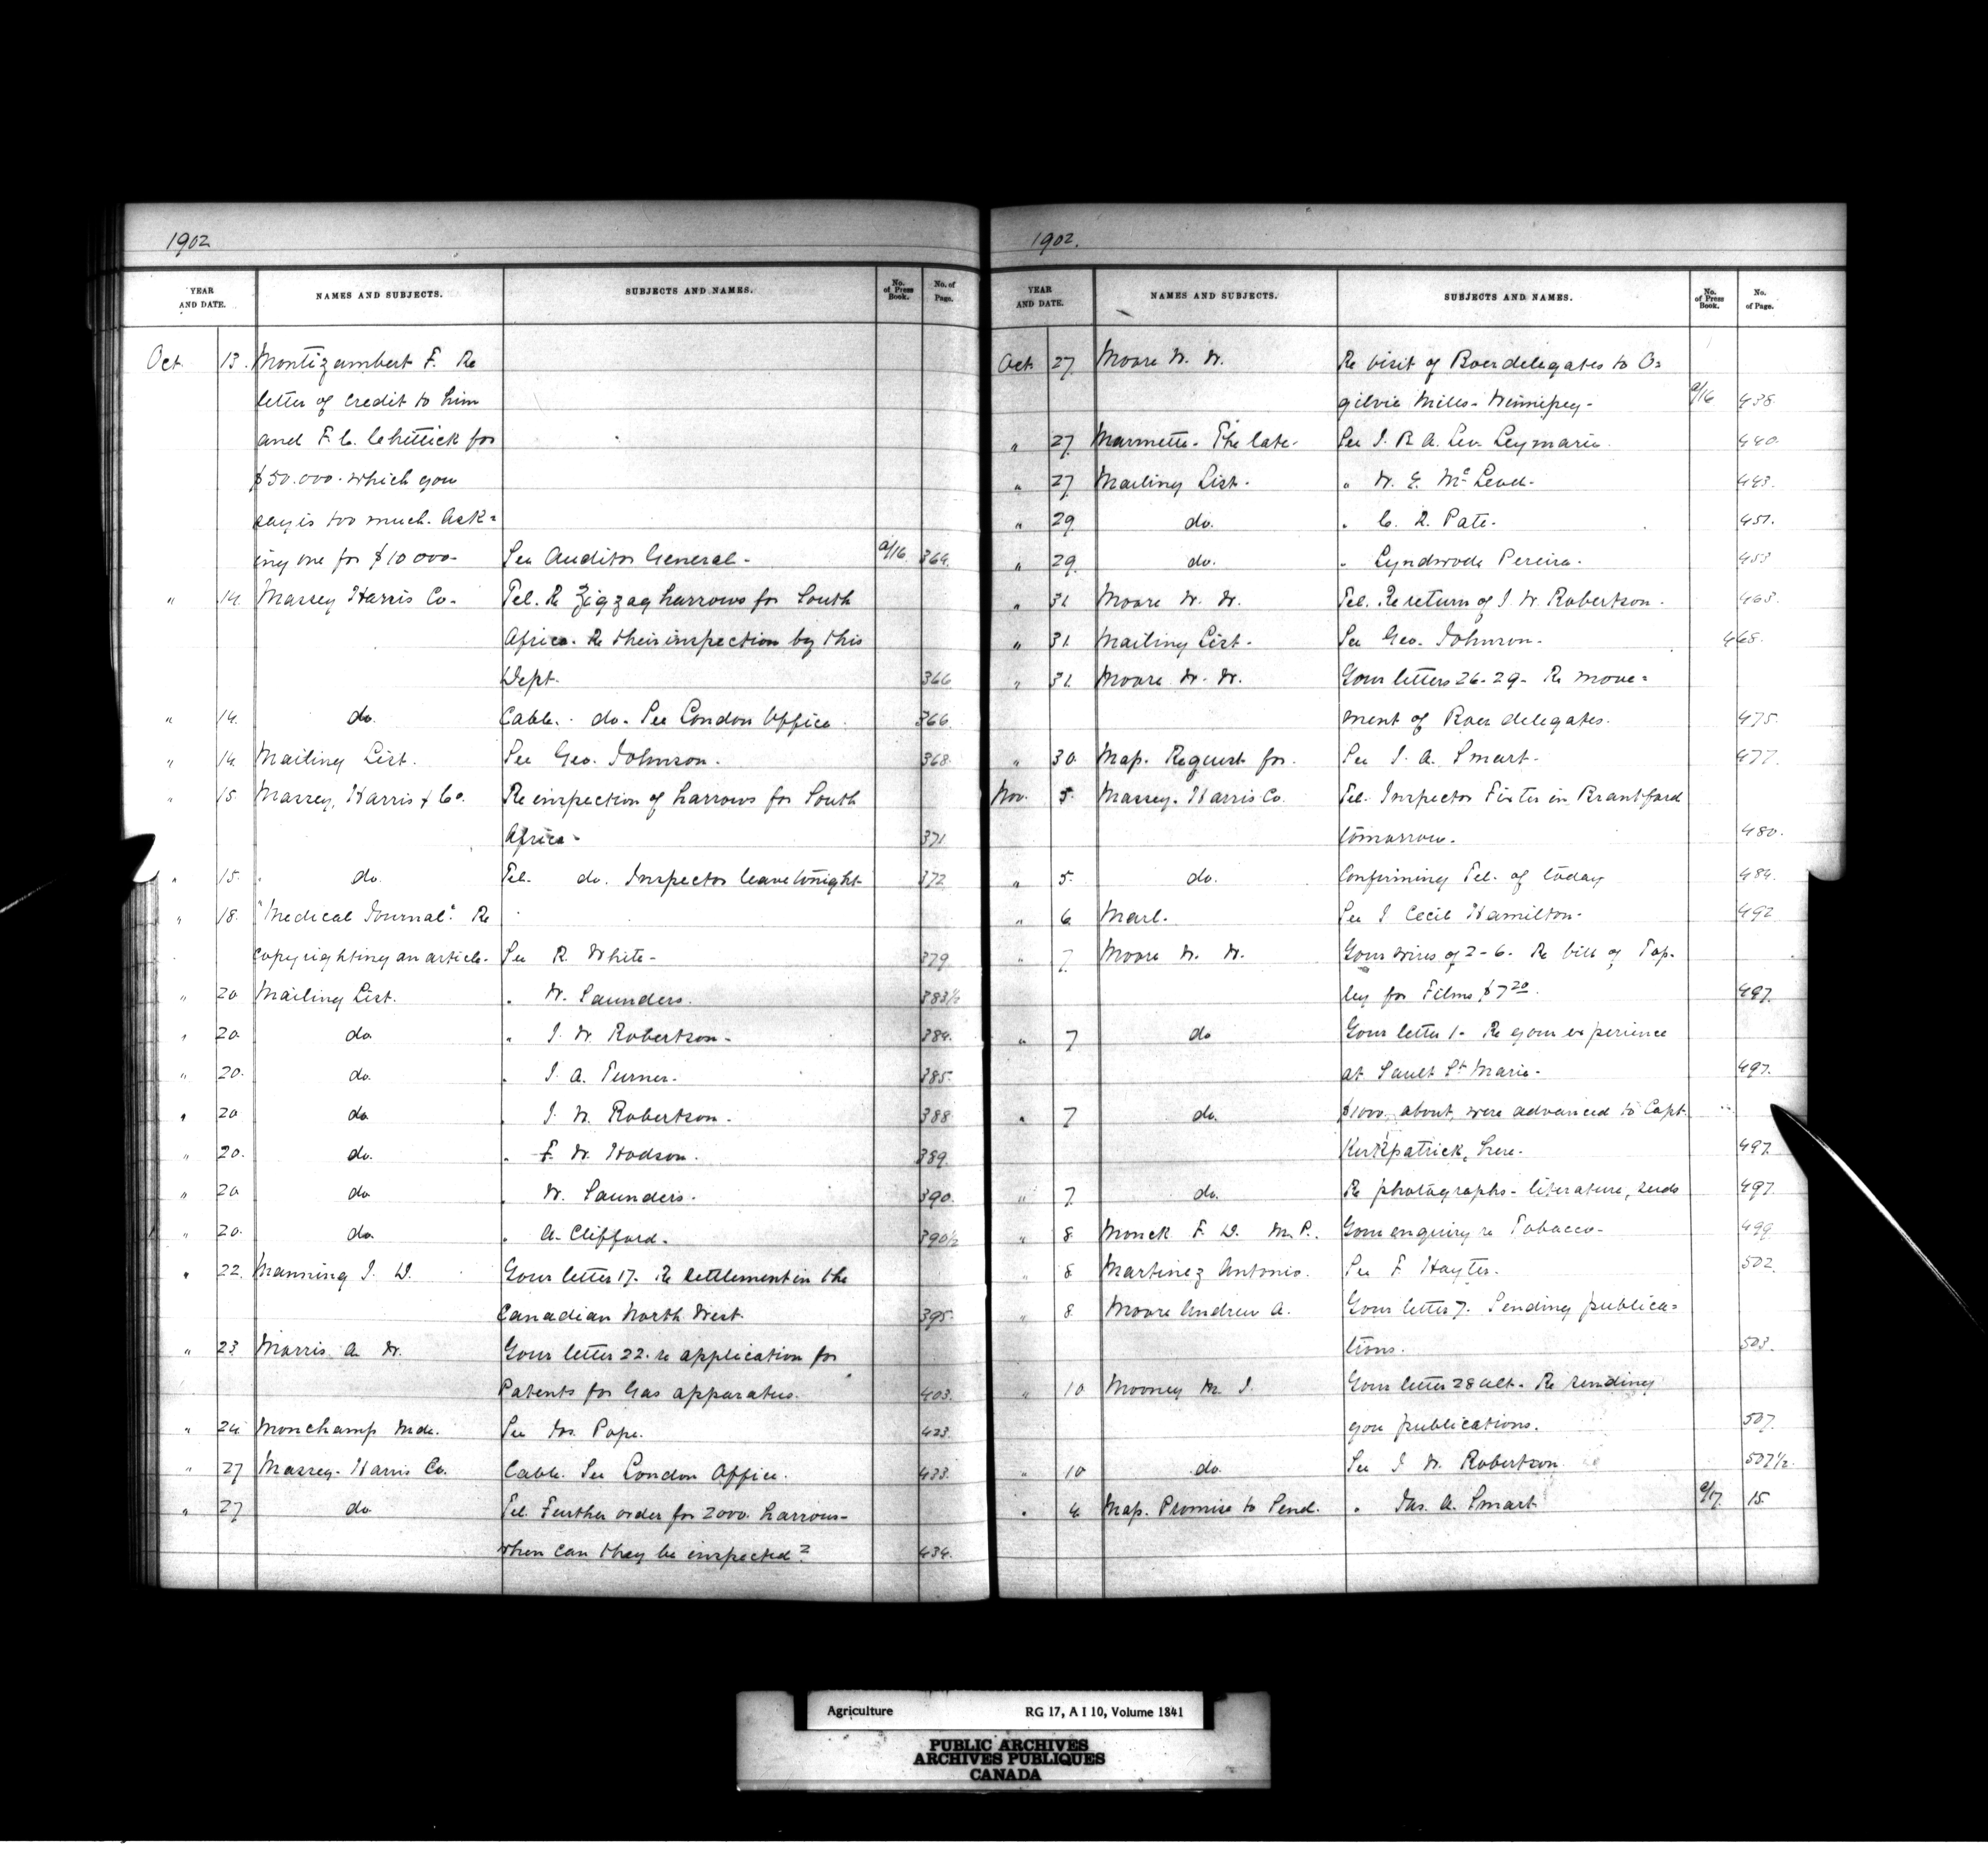 1902
YEAR AND DATE. NAMES AND SUBJECTS. SUBJECTS AND NAMES. No. of Press Book. No. of Page.
Oct. 13. Montizambert F. Re
letter of credit to him
and F. C. Chittick for
$50.000. which you
say is too much. Ask=
ing one for $10 000- See Auditor General- a/16 364.
" 14. Massey Harris Co- Tel. Re Zigzag harrows for South
Africa. Re their inspection by this
Dept. 366
" 14. do. Cable. do. See London Office. 366.
" 14. Mailing List. See Geo. Johnson. 368.
" 15. Massey, Harris & Co. Re inspection of harrows for South
Africa- 371
" 15. do. Tel. do. Inspector leave tonight- 372
" 18. "Medical Journal". Re
copyrighting an article- See R. White- 379
" 20 Mailing List. " W. Saunders. 383½
" 20. do " J. W. Robertson- 384.
" 20. do. " J. A. Turner. 385.
" 20 do " J. W. Robertson- 388
" 20. do. " F. W. Hodson. 389.
" 20 do " W. Saunders. 390.
" 20. do. " A. Clifford. 390½
" 22. Manning J. D. Your letter 17. Re settlement in the
Canadian North West. 395.
" 23 Morris A. W. Your letter 22. re application for
Patents for Gas apparatus. 403.
" 24 Monchamp Mde. See Jos. Pope. 423.
" 27 Massey-Harris Co. Cable. See London Office. 433.
" 27 do Tel. Further order for 2000. harrows-
when can they be inspected? 434.
1902.
YEAR AND DATE. NAMES AND SUBJECTS. SUBJECTS AND NAMES. No. of Press Book. No. of Page.
Oct. 27 Moore W. W. Re visit of Boer delegates to O=
gilvie Mills- Winnipeg- a/16 438.
" 27. Marmette- The late- See J. B. A. Leo. Leymarie. 440.
" 27 Mailing List- " W. E. McLeod- 443.
" 29. do. " C. R. Pate. 451.
" 29. do. " Lyndwode Pereira. 453
" 31 Moore W. W. Tel. Re return of J. W. Robertson. 463.
" 31. Mailing List- See Geo. Johnson- 465.
" 31. Moore W. W. Your letters 26-29- Re move=
ment of Boer delegates. 475.
" 30. Map. Request for. See J. A. Smart. 477.
Nov. 5. Massey-Harris Co. Tel. Inspector Fixter in Brantford
tomorrow. 480.
" 5. do. Confirming Tel. of today 484.
" 6. Marl. See J Cecil Hamilton- 492
" 7. Moore W. W. Your wires of 2-6. Re bill of Top-
ley for Films $7 20. 497.
" 7 do Your letter 1- Re your experience
at Sault St. Marie- 497.
" 7 do. $1000. about, were advanced to Capt.
Kirkpatrick, here. 497.
" 7. do. Re photographs- literature, seeds 497.
" 8. Monck F. D. M.P. Your enquiry re Tobacco- 499
" 8. Martinez Antonio. See F Hayter. 502.
" 8. Moore Andrew A. Your letter 7. Sending publica=
tions. 503.
" 10 Mooney M. J. Your letter 28 ult- Re sending
you publications. 507.
" 10 do. See J. W. Robertson 507½.
" 4. Map. Promise to Send. " Jas. A. Smart a/17. 15.
Agriculture RG 17, A I 10, Volume 1841
PUBLIC ARCHIVES
ARCHIVES PUBLIQUES
CANADA